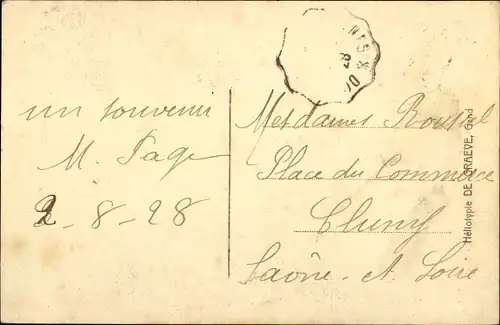 un souvenir
M. Page
2-8-28
Mesdames Roussel
Place du Commerce
Cluny
Saône-et-Loire
Héliotypie DE GRAEVE, Gand
28